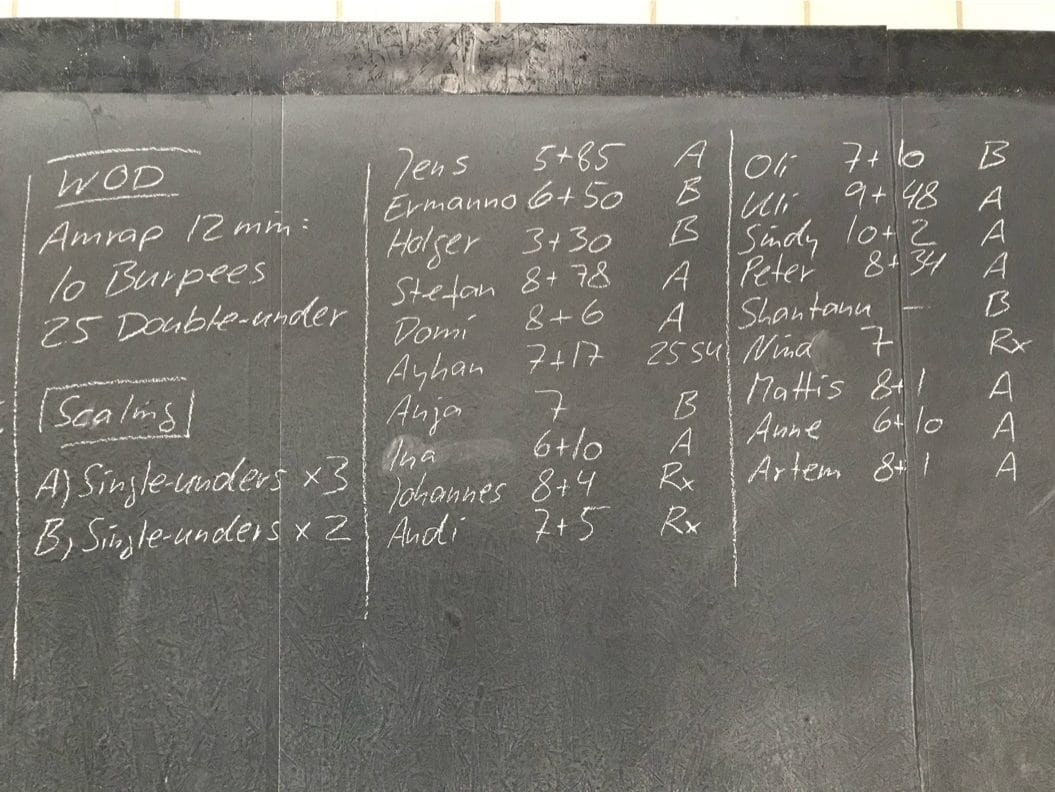 WOD
Amrap 12 min:
10 Burpees
25 Double-under
Scaling
A) Single-unders x3
B) Single-unders x 2
Jens 5+85 A
Ermanno 6+50 B
Holger 3+30 B
Stefan 8+78 A
Domi 8+6 A
Ayhan 7+17 25 SU
Anja 7 B
Ina 6+10 A
Johannes 8+4 Rx
Andi 7+5 Rx
Oli 7+10 B
Uli 9+48 A
Sindy 10+2 A
Peter 8+34 A
Shantanu – B
Nina 7 Rx
Mattis 8+1 A
Anne 6+10 A
Artem 8+1 A